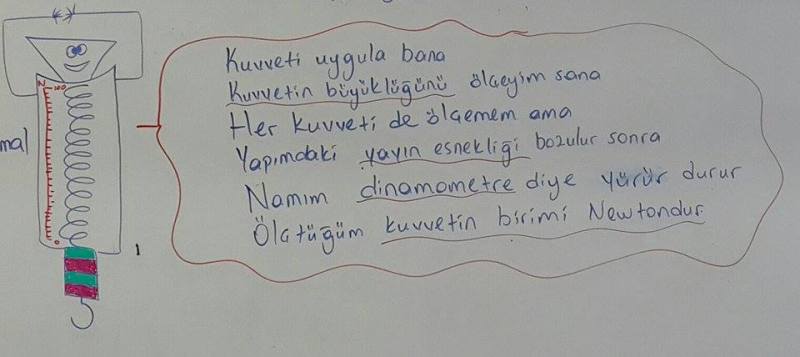 N
100
0
mal
Kuvveti uygula bana
Kuvvetin büyüklüğünü ölçeyim sana
Her kuvveti de ölçemem ama
Yapımdaki yayın esnekliği bozulur sonra
Namım dinamometre diye yürür durur
Ölçtüğüm kuvvetin birimi Newtondur.